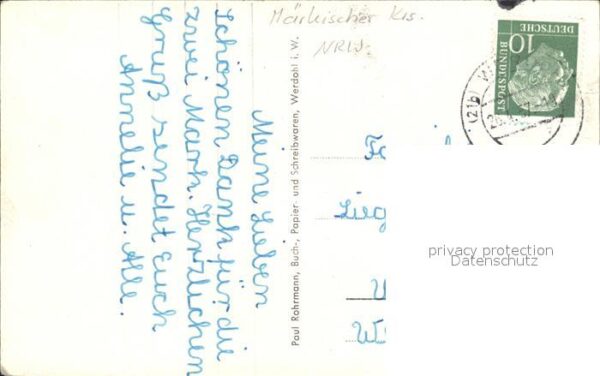 Meine Lieben
Schönen Dank für die
zwei Mark. Herzlichen
Gruß sendet Euch
Annelie u. Alle.
Paul Rohrmann, Buch-, Papier- und Schreibwaren, Werdohl i. W.
Märkischer Krs.
NRW.
10
DEUTSCHE
BUNDESPOST
(21b) W
privacy protection
Datenschutz